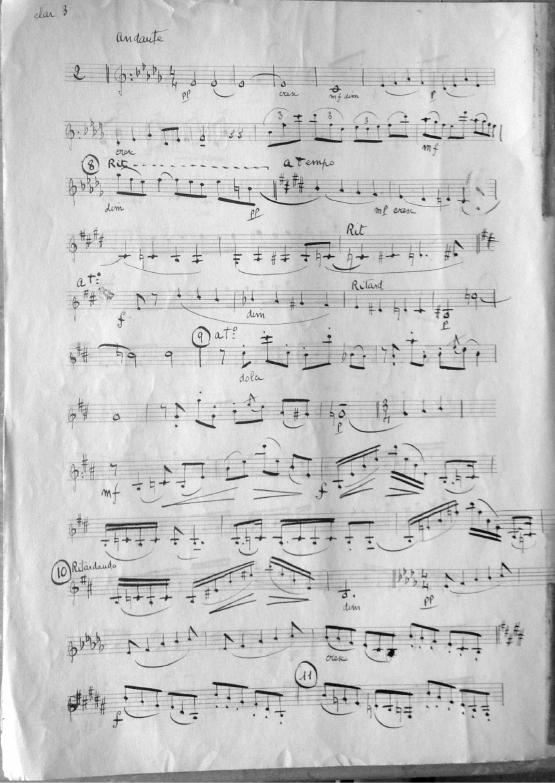 clar 3
Andante
2
pp cresc mf dim p
3 3 3
cresc mf
8 Rit a Tempo
dim pp mf cresc
Rit
a T°: Ritard
f dim p
9 a T°:
dola
p
mf f
10 Ritardando
dim pp
cresc
11
f